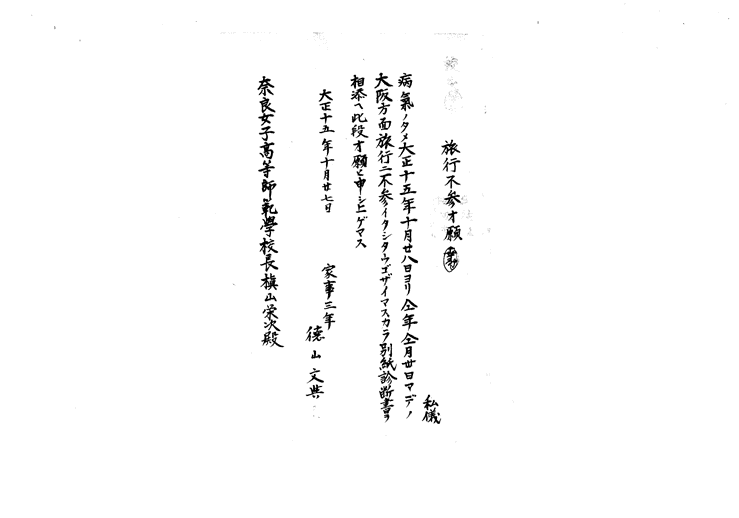 旅行不参オ願
私儀
病氣ノタメ大正十五年十月廿八日ヨリ仝年仝月卅日マデノ
大阪方面旅行ニ不参イタシタウゴザイマスカラ別紙診断書ヲ
相添ヘ此段オ願ヒ申シ上ゲマス
大正十五年十月廿七日
家事三年
德山文
奈良女子高等師範學校長槇山栄次殿